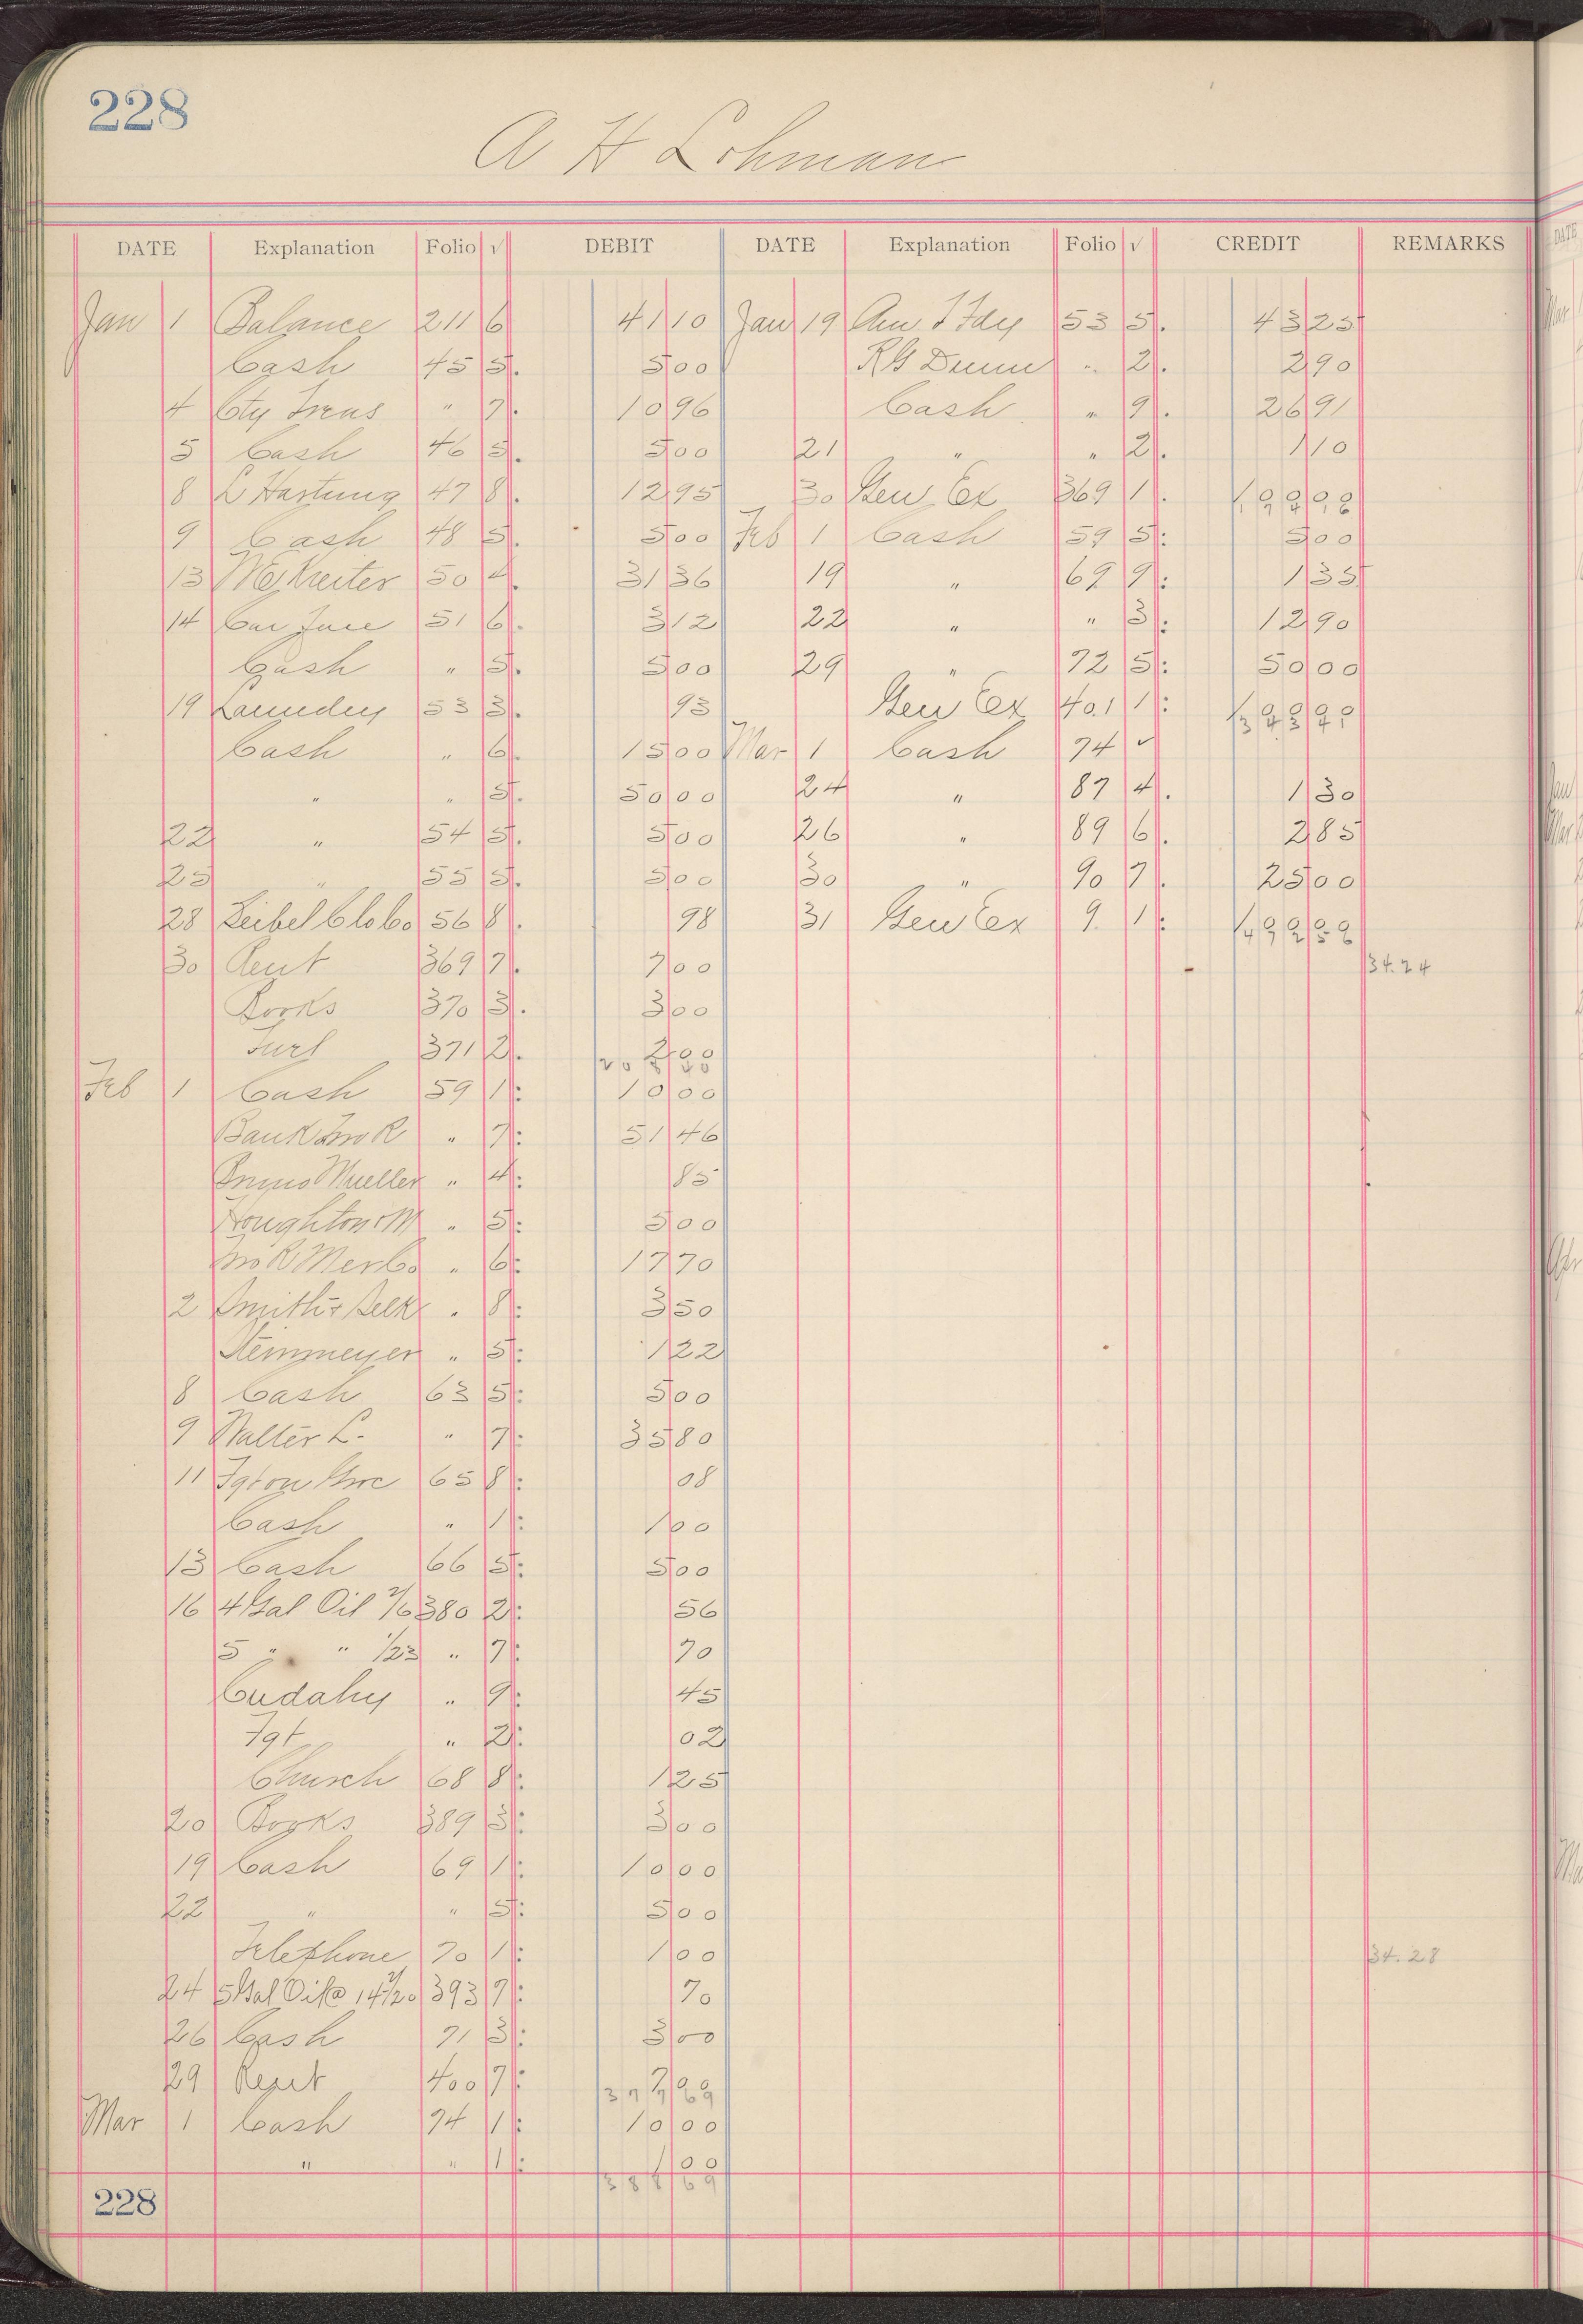 228
A H Lohman
DATE Explanation Folio √ DEBIT DATE Explanation Folio √ CREDIT REMARKS
Jan 1 Balance 211 6 41 10 Jan 19 Am T Fdy 53 5 43 25
Cash 45 5 5 00 R G Dunn " 2 2 90
4 Cty Treas " 7 10 96 Cash " 9 26 91
5 Cash 46 5 5 00 21 " " 2 1 10
8 L Hartung 47 8 12 95 30 Gen Ex 369 1
9 Cash 48 5 5 00 Feb 1 Cash 59 5 5 00
13 50 4 31 36 19 " 69 9 1 35
14 Car Fare 51 6 3 12 22 " " 3 12 90
Cash " 5 5 00 29 " 72 5 50 00
19 Laundry 53 3 93 Gen Ex 401 1
Cash " 6 15 00 Mar 1 Cash 74 ✓
" " 5 50 00 24 " 87 4 1 30
22 " 54 5 5 00 26 " 89 6 2 85
25 " 55 5 5 00 30 " 90 7 25 00
28 Leibel Clo Co 56 8 98 31 Gen Ex 9 1
30 Rent 369 7 7 00 34.24
Books 370 3 3 00
371 2 2 00
Feb 1 Cash 59 1 10 00
Bank Jno R " 7 51 46
Mueller " 4 85
Houghton M " 5 5 00
Jno R Mer Co " 6 17 70
2 Smith & " 8 3 50
Stemmeyer " 5 1 22
8 Cash 63 5 5 00
9 Walter L. " 7 35 80
11 65 8 08
Cash " 1 1 00
13 Cash 66 5 5 00
16 4 Gal Oil 2/6 380 2 56
5 " " 1/23 " 7 70
Cudahy " 9 45
Fgt " 2 02
Church 68 8 1 25
20 Books 389 3 3 00
19 Cash 69 1 10 00
22 " " 5 5 00
Telephone 70 1 1 00 34.28
24 5 Gal Oil @ 14 2/20 393 7 70
26 Cash 71 3 3 00
29 Rent 400 7 7 00
377 69
Mar 1 Cash 74 1 10 00
" " 1 1 00
388 69
228